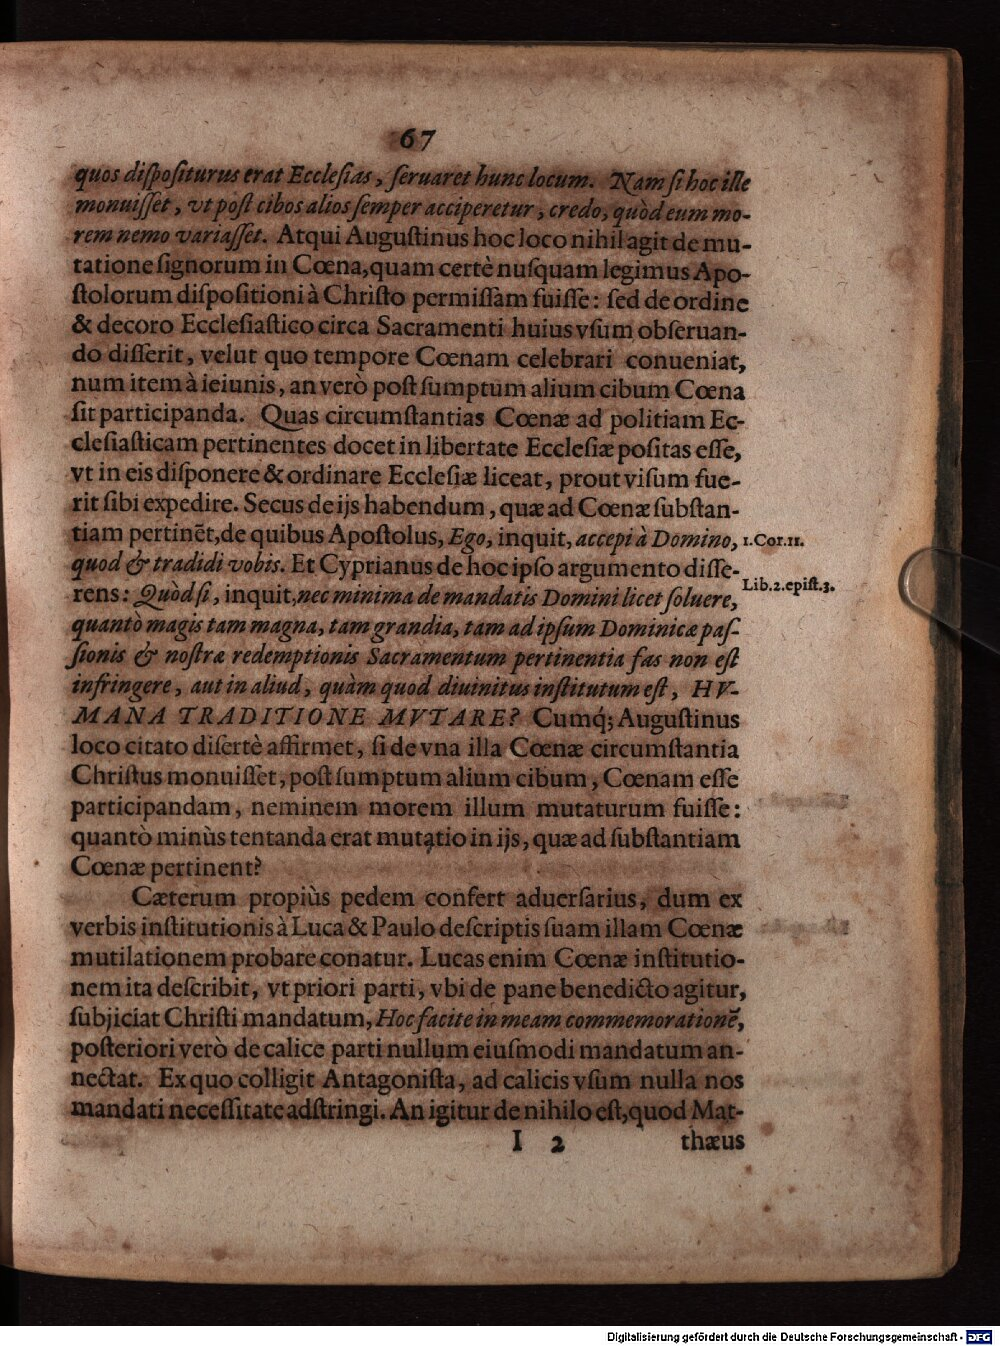 67
quos dispositurus erat Ecclesias, seruaret hunc locum. Nam si hoc ille
monuisset, vt post cibos alios semper acciperetur, credo, quòd eum mo-
rem nemo variasset. Atqui Augustinus hoc loco nihil agit de mu-
tatione signorum in Cœna, quam certè nusquam legimus Apo-
stolorum dispositioni à Christo permissam fuisse: sed de ordine
& decoro Ecclesiastico circa Sacramenti huius vsum obseruan-
do disserit, velut quo tempore Cœnam celebrari conueniat,
num item à ieiunis, an verò post sumptum alium cibum Cœna
sit participanda. Quas circumstantias Cœnæ ad politiam Ec-
clesiasticam pertinentes docet in libertate Ecclesiæ positas esse,
vt in eis disponere & ordinare Ecclesiæ liceat, prout visum fue-
rit sibi expedire. Secus de ijs habendum, quæ ad Cœnæ substan-
tiam pertinẽt, de quibus Apostolus, Ego, inquit, accepi à Domino, 1.Cor.11.
quod & tradidi vobis. Et Cyprianus de hoc ipso argumento disse-
rens: Quòd si, inquit, nec minima de mandatis Domini licet soluere, Lib.2.epist.3.
quantò magis tam magna, tam grandia, tam ad ipsum Dominicæ pas-
sionis & nostræ redemptionis Sacramentum pertinentia fas non est
infringere, aut in aliud, quàm quod diuinitus institutum est, HV-
MANA TRADITIONE MVTARE? Cumq́; Augustinus
loco citato disertè affirmet, si de vna illa Cœnæ circumstantia
Christus monuisset, post sumptum alium cibum, Cœnam esse
participandam, neminem morem illum mutaturum fuisse:
quantò minùs tentanda erat mutatio in ijs, quæ ad substantiam
Cœnæ pertinent?
Cæterum propiùs pedem confert aduersarius, dum ex
verbis institutionis à Luca & Paulo descriptis suam illam Cœnæ
mutilationem probare conatur. Lucas enim Cœnæ institutio-
nem ita describit, vt priori parti, vbi de pane benedicto agitur,
subijciat Christi mandatum, Hoc facite in meam commemorationẽ,
posteriori verò de calice parti nullum eiusmodi mandatum an-
nectat. Ex quo colligit Antagonista, ad calicis vsum nulla nos
mandati necessitate adstringi. An igitur de nihilo est, quod Mat-
I 2 thæus
Digitalisierung gefördert durch die Deutsche Forschungsgemeinschaft - DFG